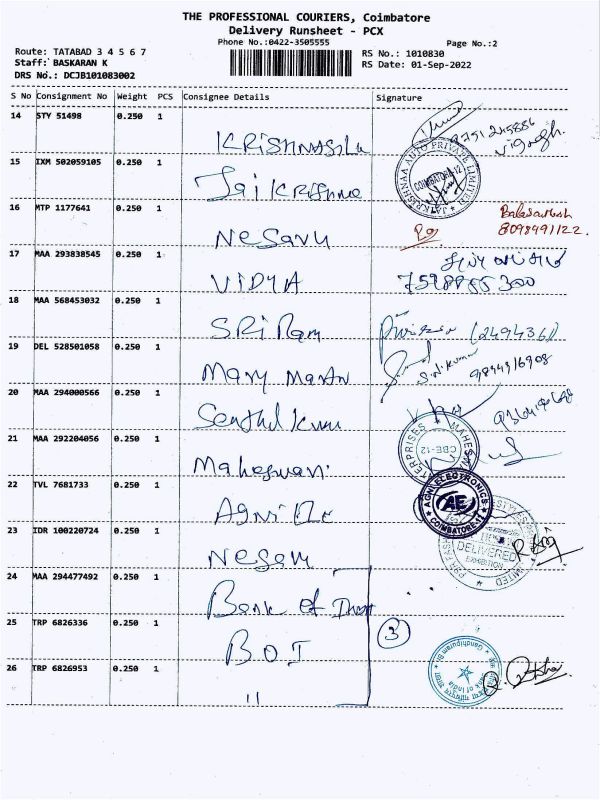 THE PROFESSIONAL COURIERS, Coimbatore
Delivery Runsheet - PCX
Phone No.:0422-3505555
Page No.:2
Route: TATABAD 3 4 5 6 7
Staff: BASKARAN K
DRS No.: DCJB101083002
RS No.: 1010830
RS Date: 01-Sep-2022
S No Consignment No Weight PCS Consignee Details Signature
14 STY 51498 0.250 1
9751245886
KRISHNA
15 IXM 502059105 0.250 1
JAIKRISHNAA AUTO PRIVATE LIMITED
COIMBATORE-12
Jai Krishna
16 MTP 1177641 0.250 1
Nesavu
8098491122.
17 MAA 293838545 0.250 1
VIDYA
18 MAA 568453032 0.250 1
SRi Ram
(2494361)
19 DEL 528501058 0.250 1
Mary Martin
S.N. Kumar
9894916908
20 MAA 294000566 0.250 1
Senthil Kum
21 MAA 292204056 0.250 1
ENTERPRISES
CBE-12
Maheswari
22 TVL 7681733 0.250 1
AGNI ELECTRONICS
AE
COIMBATORE-12
Agni Ele
23 IDR 100220724 0.250 1
DELIVERED
Nesavu
24 MAA 294477492 0.250 1
Bank of India
25 TRP 6826336 0.250 1
3
BOI
26 TRP 6826953 0.250 1
Bank of India
"